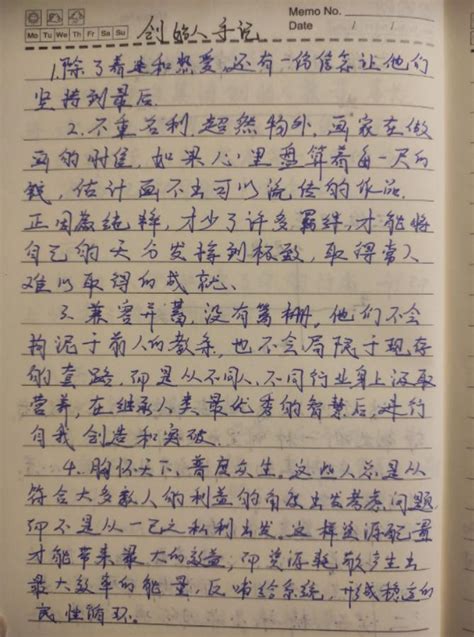 Memo No.
Mo Tu We Th Fr Sa Su
Date / /
创始人手记
1.除了着迷和热爱,还有一份信念让他们
坚持到最后.
2.不重名利,超然物外,画家在做
画的时候,如果心里盘算着每一尺的
钱,估计画不出可以流传的作品.
正因为纯粹,才少了许多羁绊,才能将
自己的天分发挥到极致,取得常人
难以取得的成就、
3.兼容并蓄,没有篱栅,他们不会
拘泥于前人的教条,也不会局限于现存
的套路,而是从不同人、不同行业身上汲取
营养,在继承人类最优秀的智慧后,进行
自我创造和突破
4.胸怀天下,普度众生.这些人总是从
符合大多数人的利益的角度出发考虑问题
而不是从一己之私利出发.这样资源配置
才能带来最大的效益,即资源能产生出
最大效率的能量,反哺给系统,形成稳定的
良性循环.